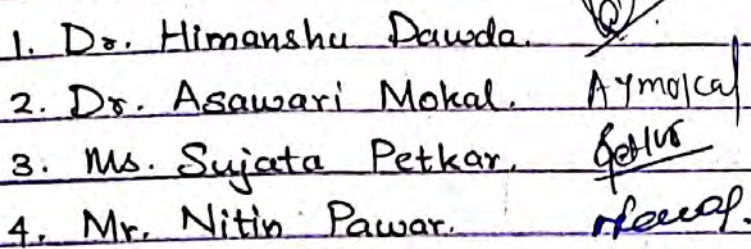 1. Dr. Himanshu Dawda.
2. Dr. Asawari Mokal. AYmokal
3. Ms. Sujata Petkar.
4. Mr. Nitin Pawar.